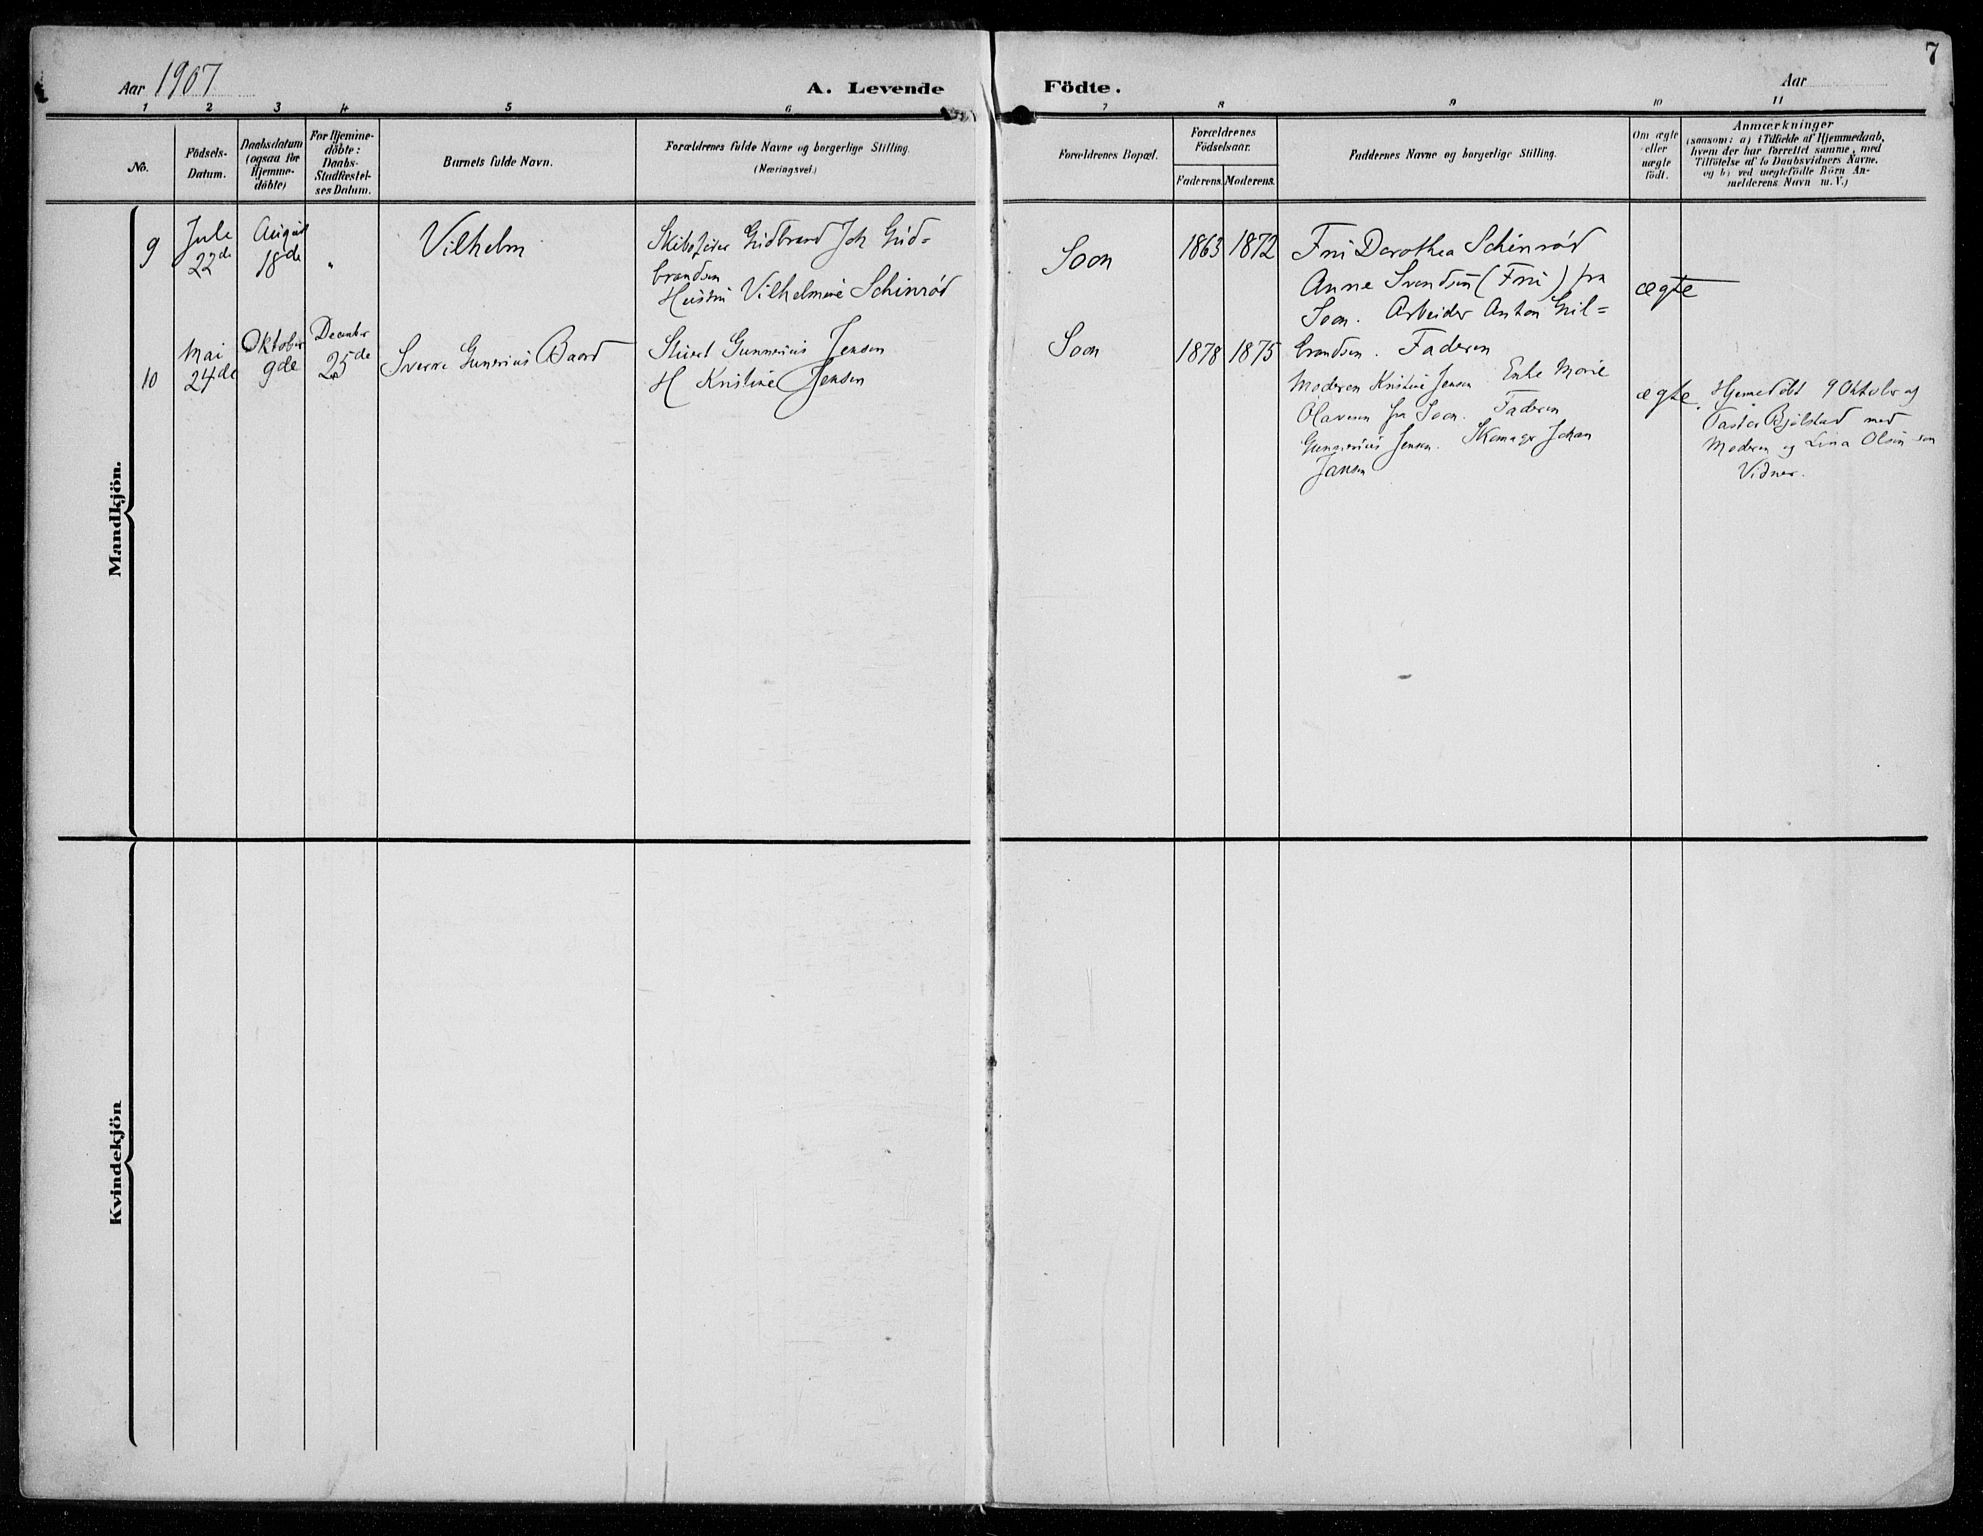 7
Aar 1907
A. Levende
Födte.
Aar
1 2 3 4 5 6 7 8 9 10 11
No.
Födsels-
Datum.
Daabsdatum
(ogsaa for
Hjemme-
döbte)
For Hjemme-
döbte:
Daabs-
Stadfæstel-
ses Datum.
Barnets fulde Navn.
Forældrenes fulde Navne og borgerlige Stilling
(Næringsvei.)
Forældrenes Bopæl.
Forældrenes
Födselsaar.
Faderens. Moderens.
Faddernes Navne og borgerlige Stilling.
Om ægte
eller
uægte
födt.
Anmærkninger
(saasom: a) i Tilfælde af Hjemmedaab,
hvem der har forrettet samme, med
Tilföielse af to Daabsvidners Navne.
og b) ved uægtefödte Börn An-
melderens Navn m. V.)
Mandkjön.
9
Jule
22de
August
18de
"
Vilhelm
Skibsfører Gudbrand Joh Gud-
brandsen
Hustru Vilhelmine Schinrød
Soon
1863 1872
Fru Dorothea Schinrød
Anne Svendsen (Fru) fra
Soon. Arbeider Anton Gul=
brandsen. Faderen
ægte
10
Mai
24de
Oktober
9de
December
25de
Sverre Gunerius Baard
Stuert Gunnerius Jensen
H Kristine Jensen
Soon
1878 1875
Moderen Kristine Jensen Enke Marie
Olavesen fra Soon. Faderen
Gunnerius Jensen. Skomager Johan
Jansen
ægte.
Hjemmedöbt 9 Oktober af
Pastor Bjölstad med
Moderen og Lina Olsen som
Vidner.
Kvindekjön